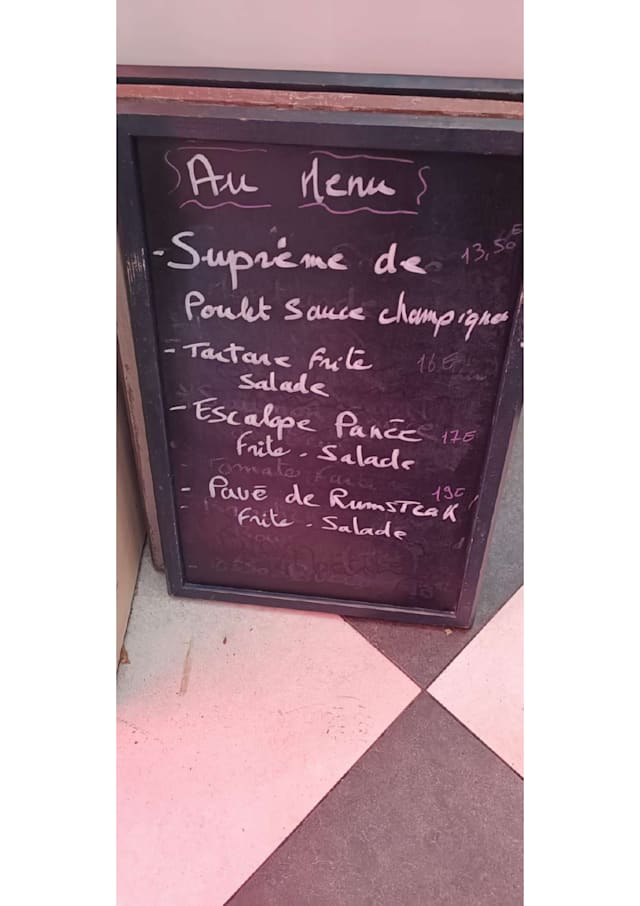 Au Menu
- Suprême de 13,50€
Poulet Sauce champignon
- Tartare frite 16€
Salade
- Escalope Panée 17€
frite - Salade
Tomate
- Pavé de RumsTeaK 19€
frite - Salade